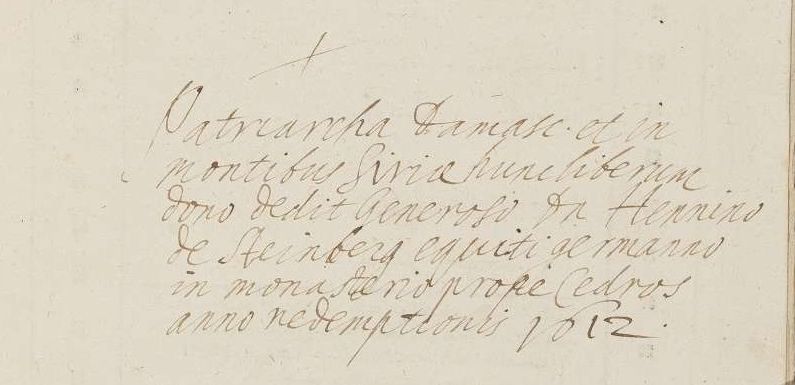 Patriarcha Damasc. et in
montibus Siriæ hunc liberum
dono dedit Generoso Dn Hennino
de Steinberg equiti germanno
in monasterio prope Cedros
anno redemptionis 1612.